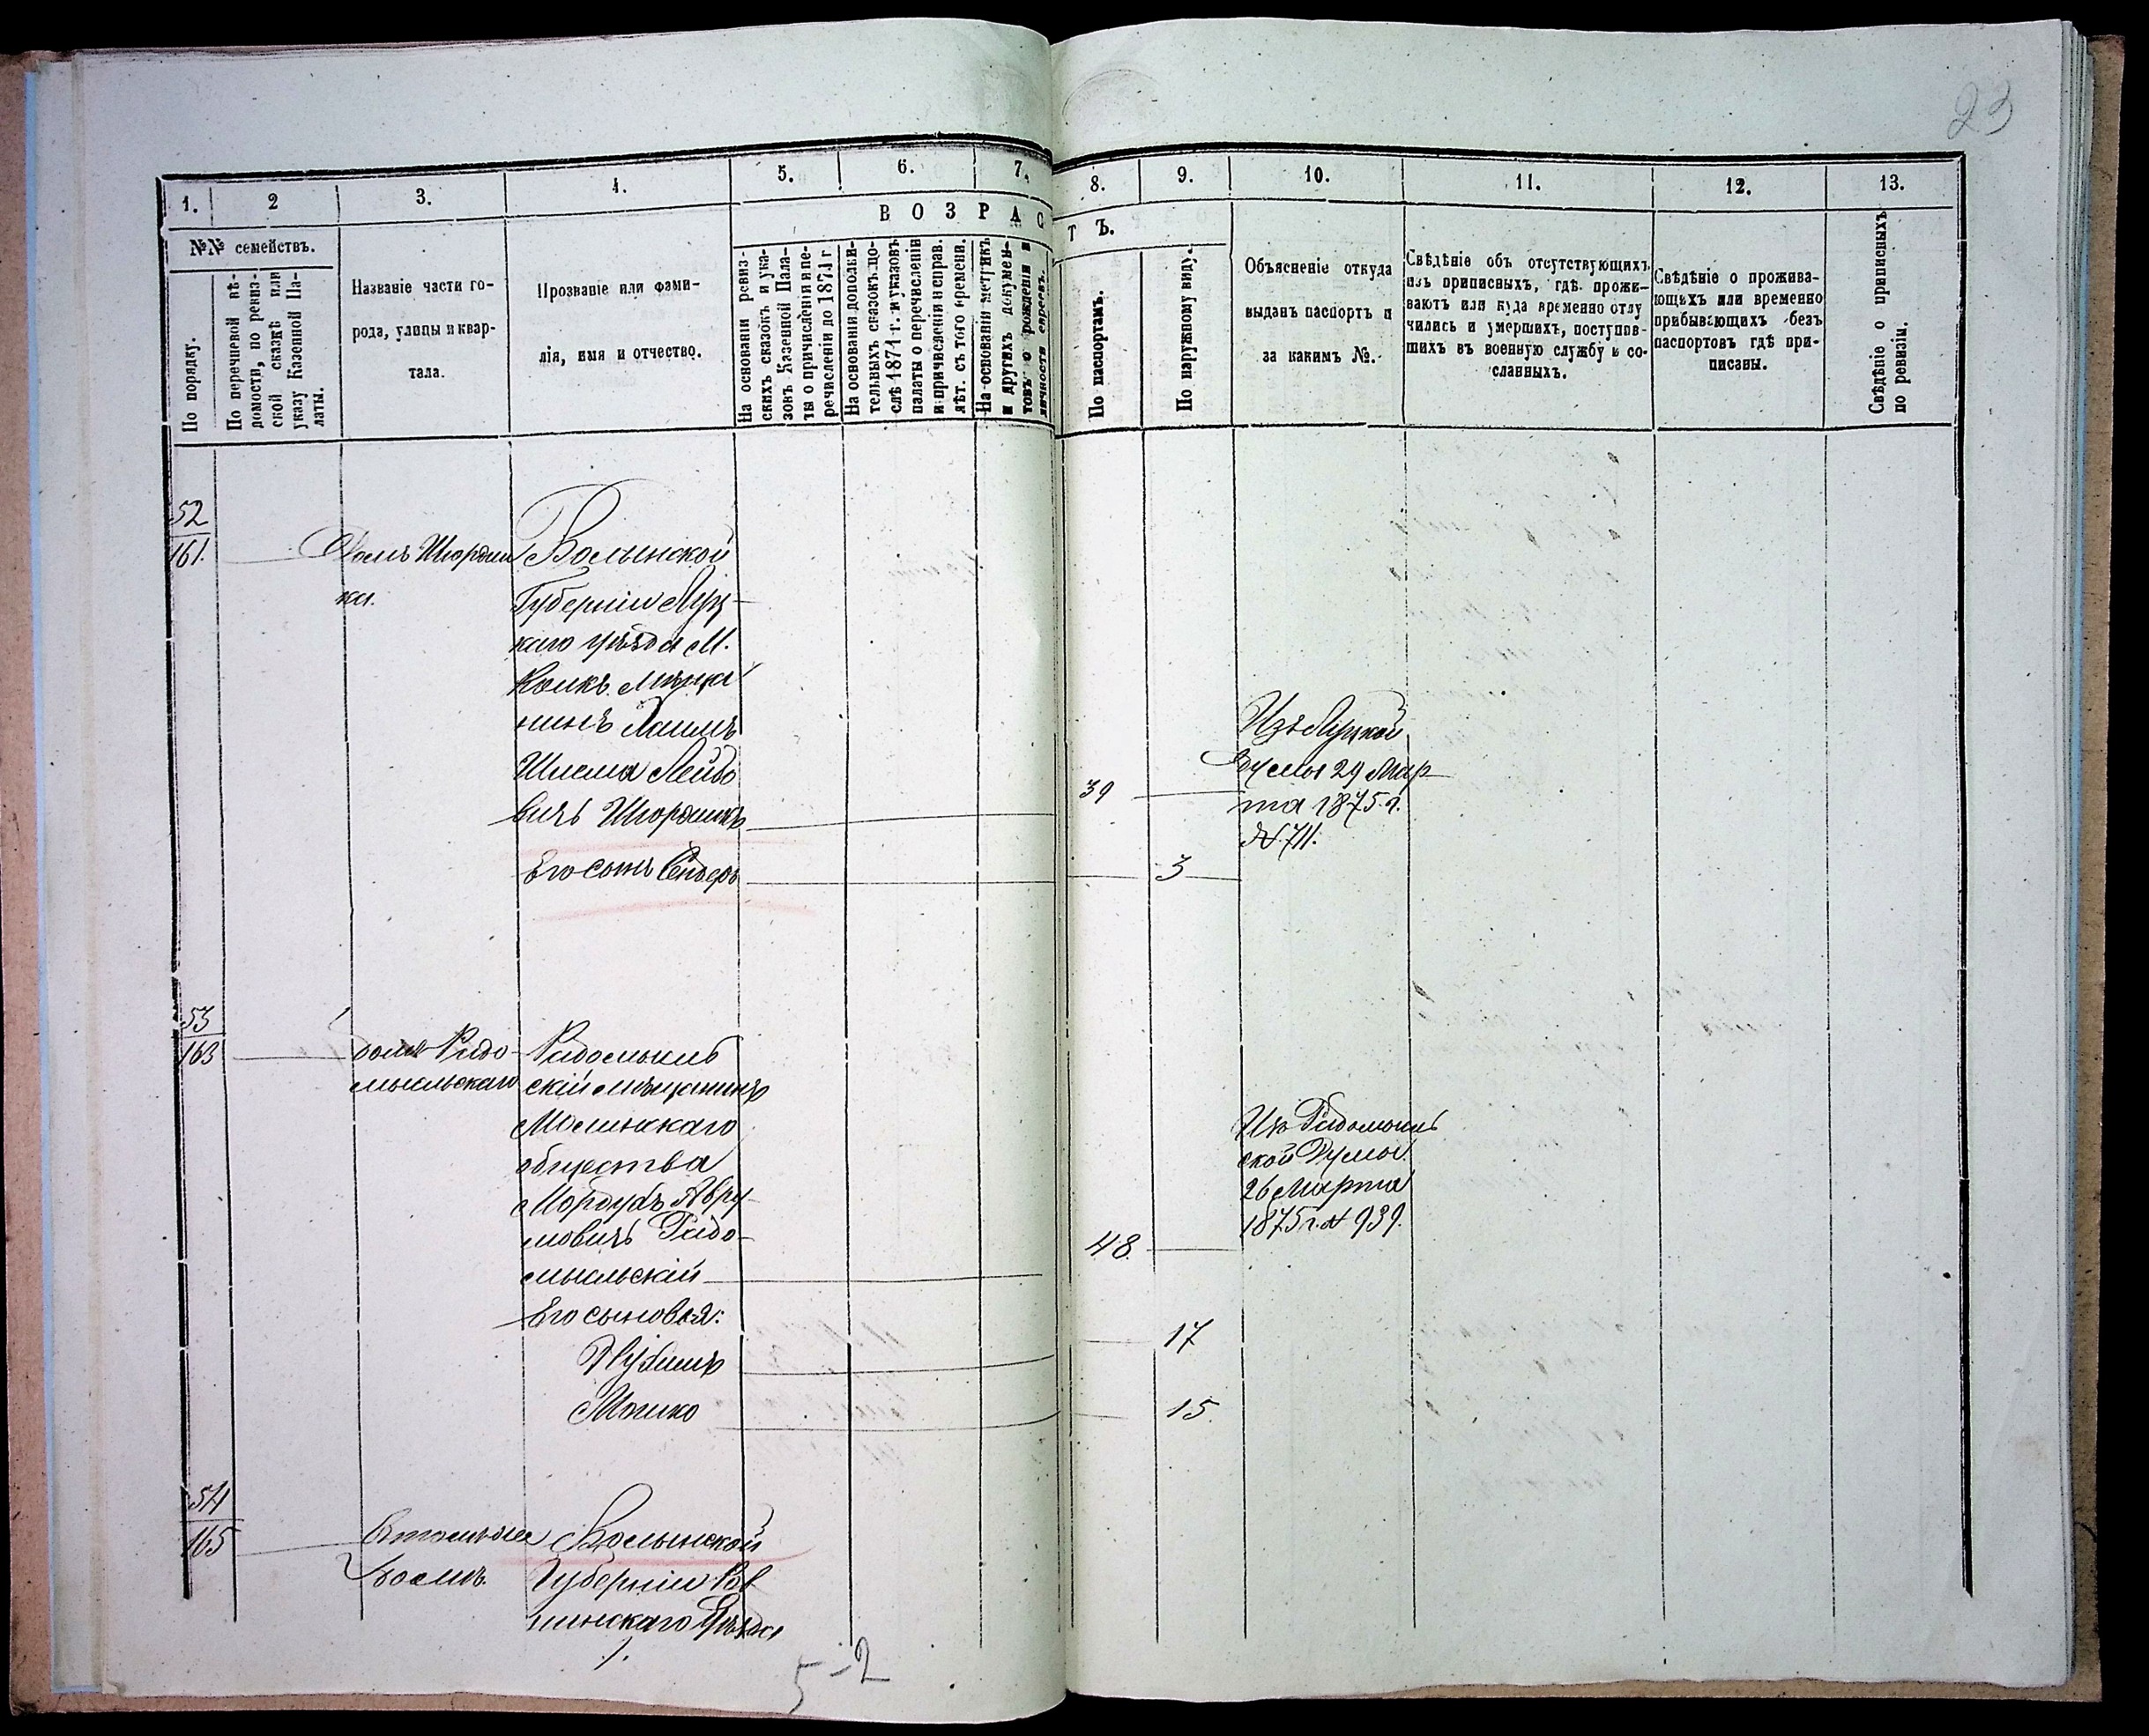 23
1.
2
3.
4.
5.
6.
7.
8.
9.
10.
11.
12.
13.
ВОЗРАС
ТЪ.
№№ семействъ.
По порядку.
По перечневой вѣ-
домости, по ревиз-
ской сказкѣ или
указу Казенной Па-
латы.
Названіе части го-
рода, улицы и квар-
тала.
Прозваніе или фами-
лія, имя и отчество.
На основаніи ревиз-
скихъ сказокъ и ука-
зовъ Казенной Пала-
ты о причисленіи и пе-
речисленіи до 1874 г.
На основаніи дополни-
тельныхъ сказокъ по-
слѣ 1874 г. и указовъ
палаты о перечисленіи
и причисленіи и справ.
лѣт. съ того времени.
На основаніи метрикъ
и другихъ докумен-
товъ о рожденіи и
личности евреевъ.
По паспортамъ.
По наружному виду.
Объясненіе откуда
выданъ паспортъ и
за какимъ №.
Свѣдѣніе объ отсутствующихъ
изъ приписныхъ, гдѣ прожи-
ваютъ или куда временно отлу
чились и умершихъ, поступив-
шихъ въ военную службу и со-
сланныхъ.
Свѣдѣніе о прожива-
ющихъ или временно
прибывающихъ безъ
паспортовъ гдѣ при-
писаны.
Свѣдѣніе о приписныхъ
по ревизіи.
52
161.
Домъ
ка.
Волынской
Губерніи Луц-
каго уѣзда М.
Колкъ мѣща
нинъ Хаимъ
Шлема Лейбо
вичъ
Его сынъ Сендеръ
39
3
Изъ Луцкой
Думы 29 Мар-
та 1875 г.
№ 711.
53
163
домъ Радо-
мысльскаго
Радомысль
скій мѣщанинъ
Малинскаго
общества
Мордухъ Авру-
мовичъ Радо-
мысльскій
Его сыновья:
Нухимъ
Мошко
48.
17
15.
Изъ Радомысль
ской Думы
26 Марта
1875 г. № 939.
54
165
домъ.
Волынской
Губерніи Ров
нинскаго Уѣзда
5-2